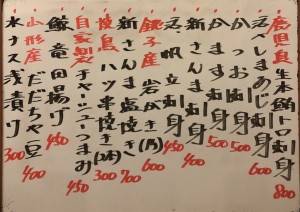 鹿児島産生本鮪トロ刺身 800
活〆しまあじ刺身 600
かつお刺身 500
かんぱち刺身 500
新さんま刺身 450
活帆立刺身 400
銚子産岩がき(1ヶ) 600
新さんま塩焼き 700
焼鳥ハツ串焼き(2本) 300
自家製チャーシューつまみ 450
鯨竜田揚げ 450
山形産だだちゃ豆 400
水ナス浅漬け 300